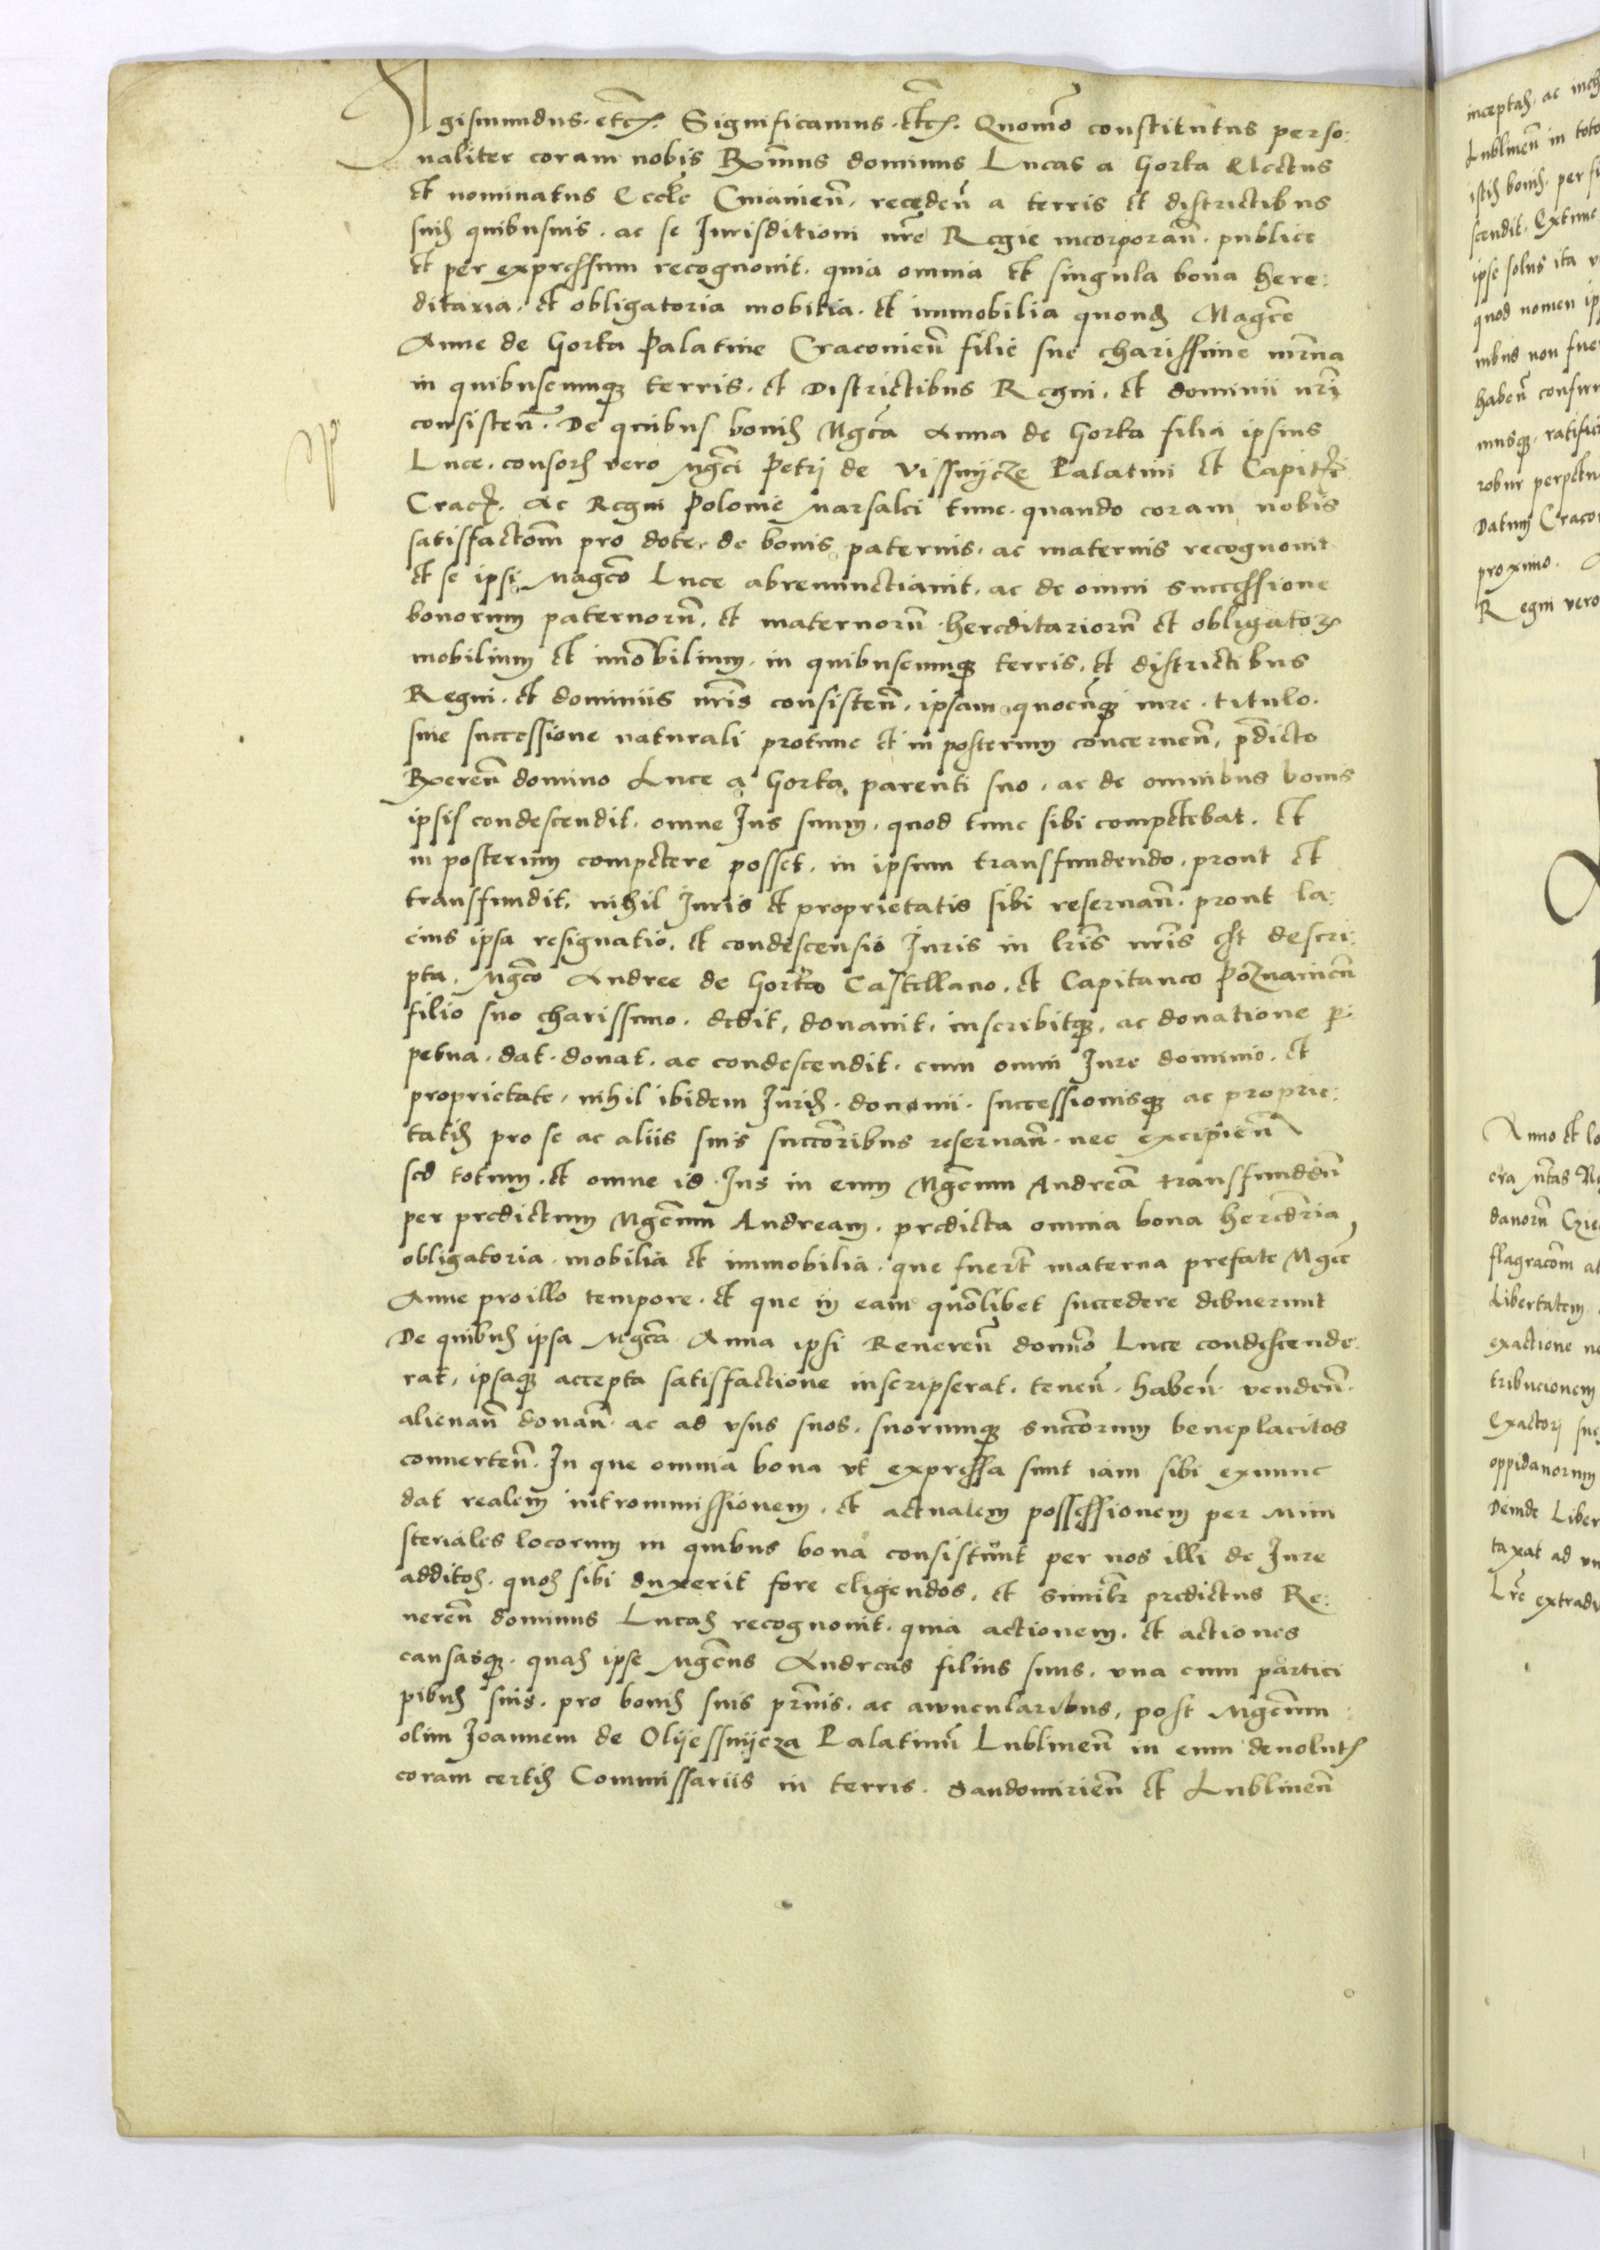 Sigismundus. etc͞. Significamus. etc͞. Quom̄o constitutus perso:
naliter coram nobis Rx̄mus dominus Lucas a Gorka Electus
et nominatus Eccl̄e Cuiauien̄. receden̄ a terris et districtibus
suis quibusuis. ac se Jurisditioni nr̄e Regie incorporan̄. publice
et per expressum recognouit. quia omnia et singula bona here:
ditaria. et obligatoria mobilia. et immobilia quond̄ Magc̄e
Anne de Gorka Palatine Cracouien̄ filie sue charissime mr̄na
in quibuscunq̨ terris. et Districtibus Regni. et dominii nr̄i
consisten̄. De quibus bonis Mgc̄a Anna de Gorka filia ipsius
Luce. consors vero Mgc̄i Petrj de Vissnijcze Palatini et Capitn̄i
Crac̄. Ac Regni Polonie Marsalci tunc. quando coram nobis
satisfactom̄ pro dote. de bonis paternis. ac maternis recognouit
et se ipsi Magc̄o Luce abrenunctiauit. ac de omni successione
bonorum paternorū. et maternorū. hereditariorū et obligator̄
mobilium et imōbilium. in quibuscunq̨ terris. et districtibus
Regni. et dominiis nr̄is consisten̄. ipsam quocūq̨ iure. titulo.
siue successione naturali protunc et in posterum concernen̄. p̄dicto
Rxeren̄ domino Luce a Gorka parenti suo. ac de omnibus bonis
ipsis condescendit. omne Jus suum. quod tunc sibi competebat. Et
in posterum competere posset. in ipsum transfundendo. prout et
transfundit. nihil Juris et proprietatis sibi reseruan̄. prout la:
cius ipsa resignatio. et condescensio Juris in lr̄is nr̄is est descri:
pta. Mgc̄o Andree de Gorka Castellano. et Capitaneo Poznanien̄
filio suo charissimo. dedit. donauit. inscribitq̨. ac donatione p̄:
petua. dat. donat. ac condescendit. cum omni Jure dominio. et
proprietate. nihil ibidem Juris. dominii. successionisq̨ ac proprie:
tatis pro se ac aliis suis succōribus reseruan̄. nec excipien̄
sed totum. et omne id Jus in eum Mgc̄um Andreā transfunden̄
per predictum Mgc̄um Andream. predicta omnia bona heredr̄ia,
obligatoria. mobilia et immobilia. que fuer̄t materna prefate Mgc̄e
Anne pro illo tempore. et que in eam quōlibet succedere debuerunt
De quibus ipsa Mgc̄a Anna ipsi Reueren̄ domīo Luce condescende:
rat. ipsaq̨ accepta satisfactione inscripserat. tenen̄. haben̄. venden̄.
alienan̄ donan̄. ac ad vsus suos. suorumq̨ succōrum beneplacitos
conuerten̄. In que omnia bona vt expressa sunt iam sibi exnunc
dat realem intrommissionem. et actualem possessionem per Mini
steriales locorum in quibus bona consistunt per nos illi de Jure
additos. quos sibi duxerit fore eligendos. et similr̄ predictus Re:
ueren̄ dominus Lucas recognouit. quia actionem. et actiones
causasq̨. quas ipse Mgc̄us Andreas filius suus. vna cum partici
pibus suis. pro bonis suis pr̄nis. ac awncularibus. post Mgc̄um
olim Joannem de Olijessnijcza Palatinū Lublinen̄ in eum deuolut̄
coram certis Commissariis in terris. Sandomirien̄ et Lublinen̄